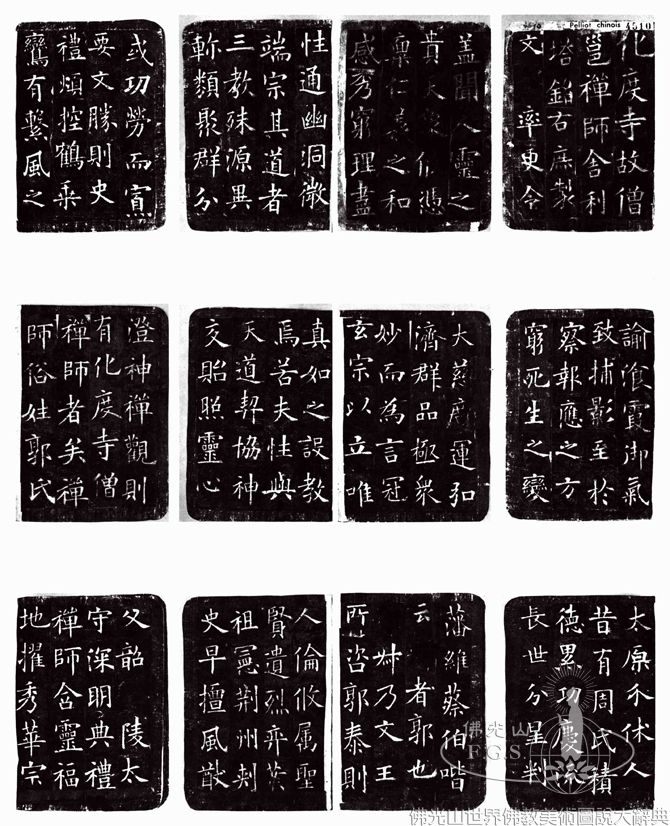 Pelliot chinois
4510
化度寺故僧
邕禪師舍利
塔銘右庶製
文 率更令
盖聞人靈之
貴 憑
稟仁義之和
感秀窮理盡
性通幽洞微
端宗其道者
三教殊源異
軫類聚群分
或功勞而寡
要文勝則史
禮煩控鶴乘
鸞有繫風之
諭飡霞御氣
致捕影至於
察報應之方
窮死生之變
大慈廣運弘
濟群品極衆
妙而為言冠
玄宗以立唯
真如之設教
焉若夫性與
天道契協神
交貽照靈心
澄神禪觀則
有化度寺僧
禪師者矣禪
師俗姓郭氏
太原介休人
昔有周氏積
德累功慶流
長世分星判
藩維蔡伯喈
云 者郭也
叔乃文王
所咨郭泰則
人倫攸属聖
賢遺烈弈葉
祖憲荊州刺
史早擅風猷
父韶 陵太
守深明典禮
禪師含靈福
地擢秀華宗
佛光山
F.G.S.
佛光山世界佛教美術圖說大辭典